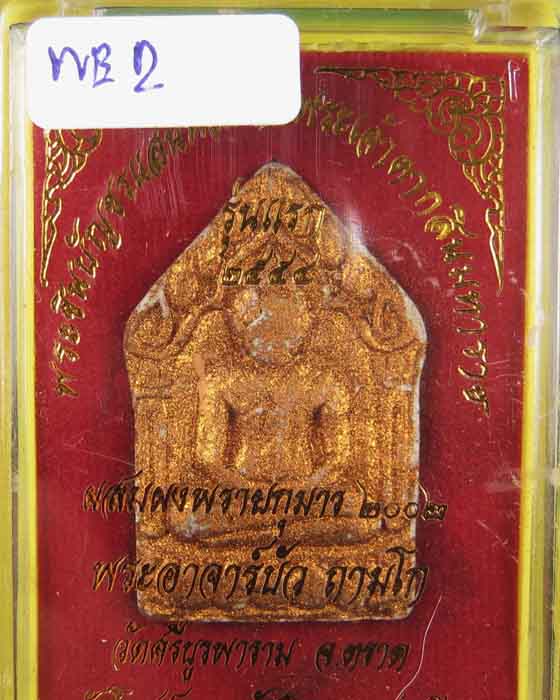 พB 2
พระชินบัญชรแสน พระเจ้าตากสินมหาราช
รุ่นแรก
๒๕๕๔
ผสมผงพรายกุมาร ๒๐๐๒
พระอาจารย์บัว ถามโก
วัดศรีบูรพาราม จ.ตราด